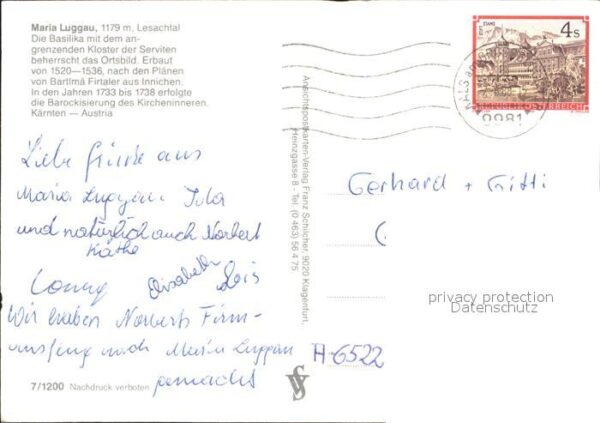 Maria Luggau, 1179 m, Lesachtal
Die Basilika mit dem an-
grenzenden Kloster der Serviten
beherrscht das Ortsbild. Erbaut
von 1520—1536, nach den Plänen
von Bartlmä Firtaler aus Innichen.
In den Jahren 1733 bis 1738 erfolgte
die Barockisierung des Kircheninneren.
Kärnten — Austria
Liebe Grüsse aus
Maria Luggau
und natürlich auch Norbert
Käthe
Conny Elisabeth Lois
Wir haben Norberts Firm-
nach Maria Luggau
gemacht
7/1200 Nachdruck verboten
Ansichtspostkarten-Verlag Franz Schilcher, 9020 Klagenfurt,
Heinzgasse 8 - Tel. (0 463) 56 4 75
STIFT STAMS
4 S
REPUBLIK ÖSTERREICH
KALS am
9981
Gerhard + Gitti
privacy protection
Datenschutz
A-6522